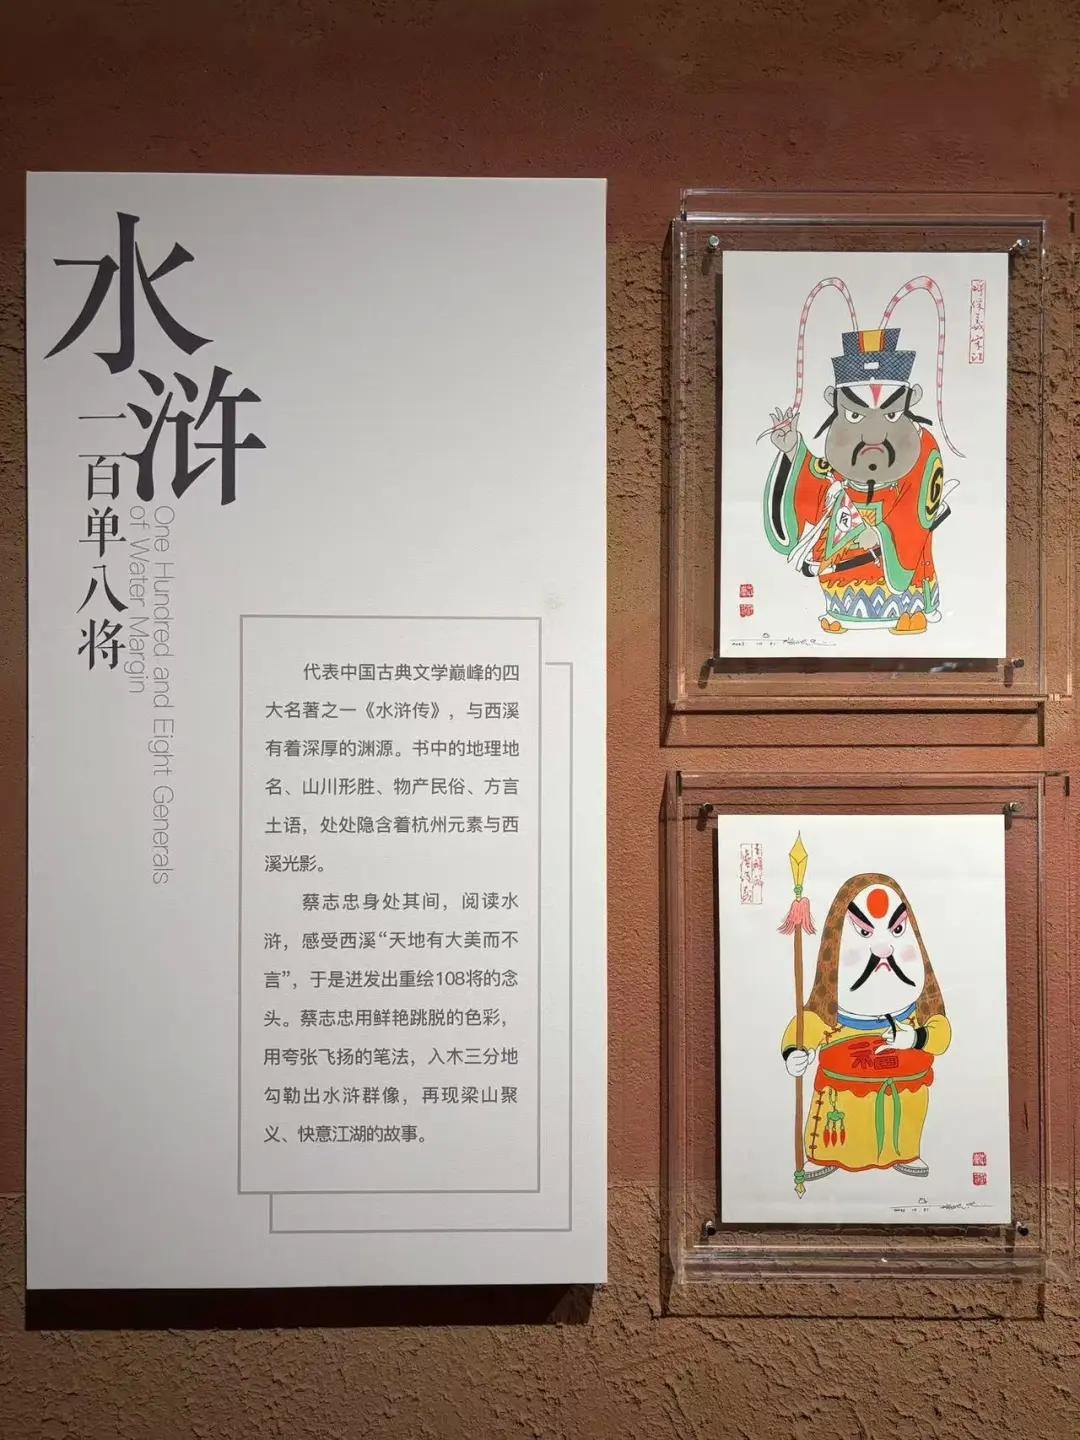 水浒
一百单八将
One Hundred and Eight Generals
of Water Margin
代表中国古典文学巅峰的四
大名著之一《水浒传》，与西溪
有着深厚的渊源。书中的地理地
名、山川形胜、物产民俗、方言
土语，处处隐含着杭州元素与西
溪光影。
蔡志忠身处其间，阅读水
浒，感受西溪“天地有大美而不
言”，于是迸发出重绘108将的念
头。蔡志忠用鲜艳跳脱的色彩，
用夸张飞扬的笔法，入木三分地
勾勒出水浒群像，再现梁山聚
义、快意江湖的故事。
呼保义宋江
令
玉麒麟
卢俊义
福